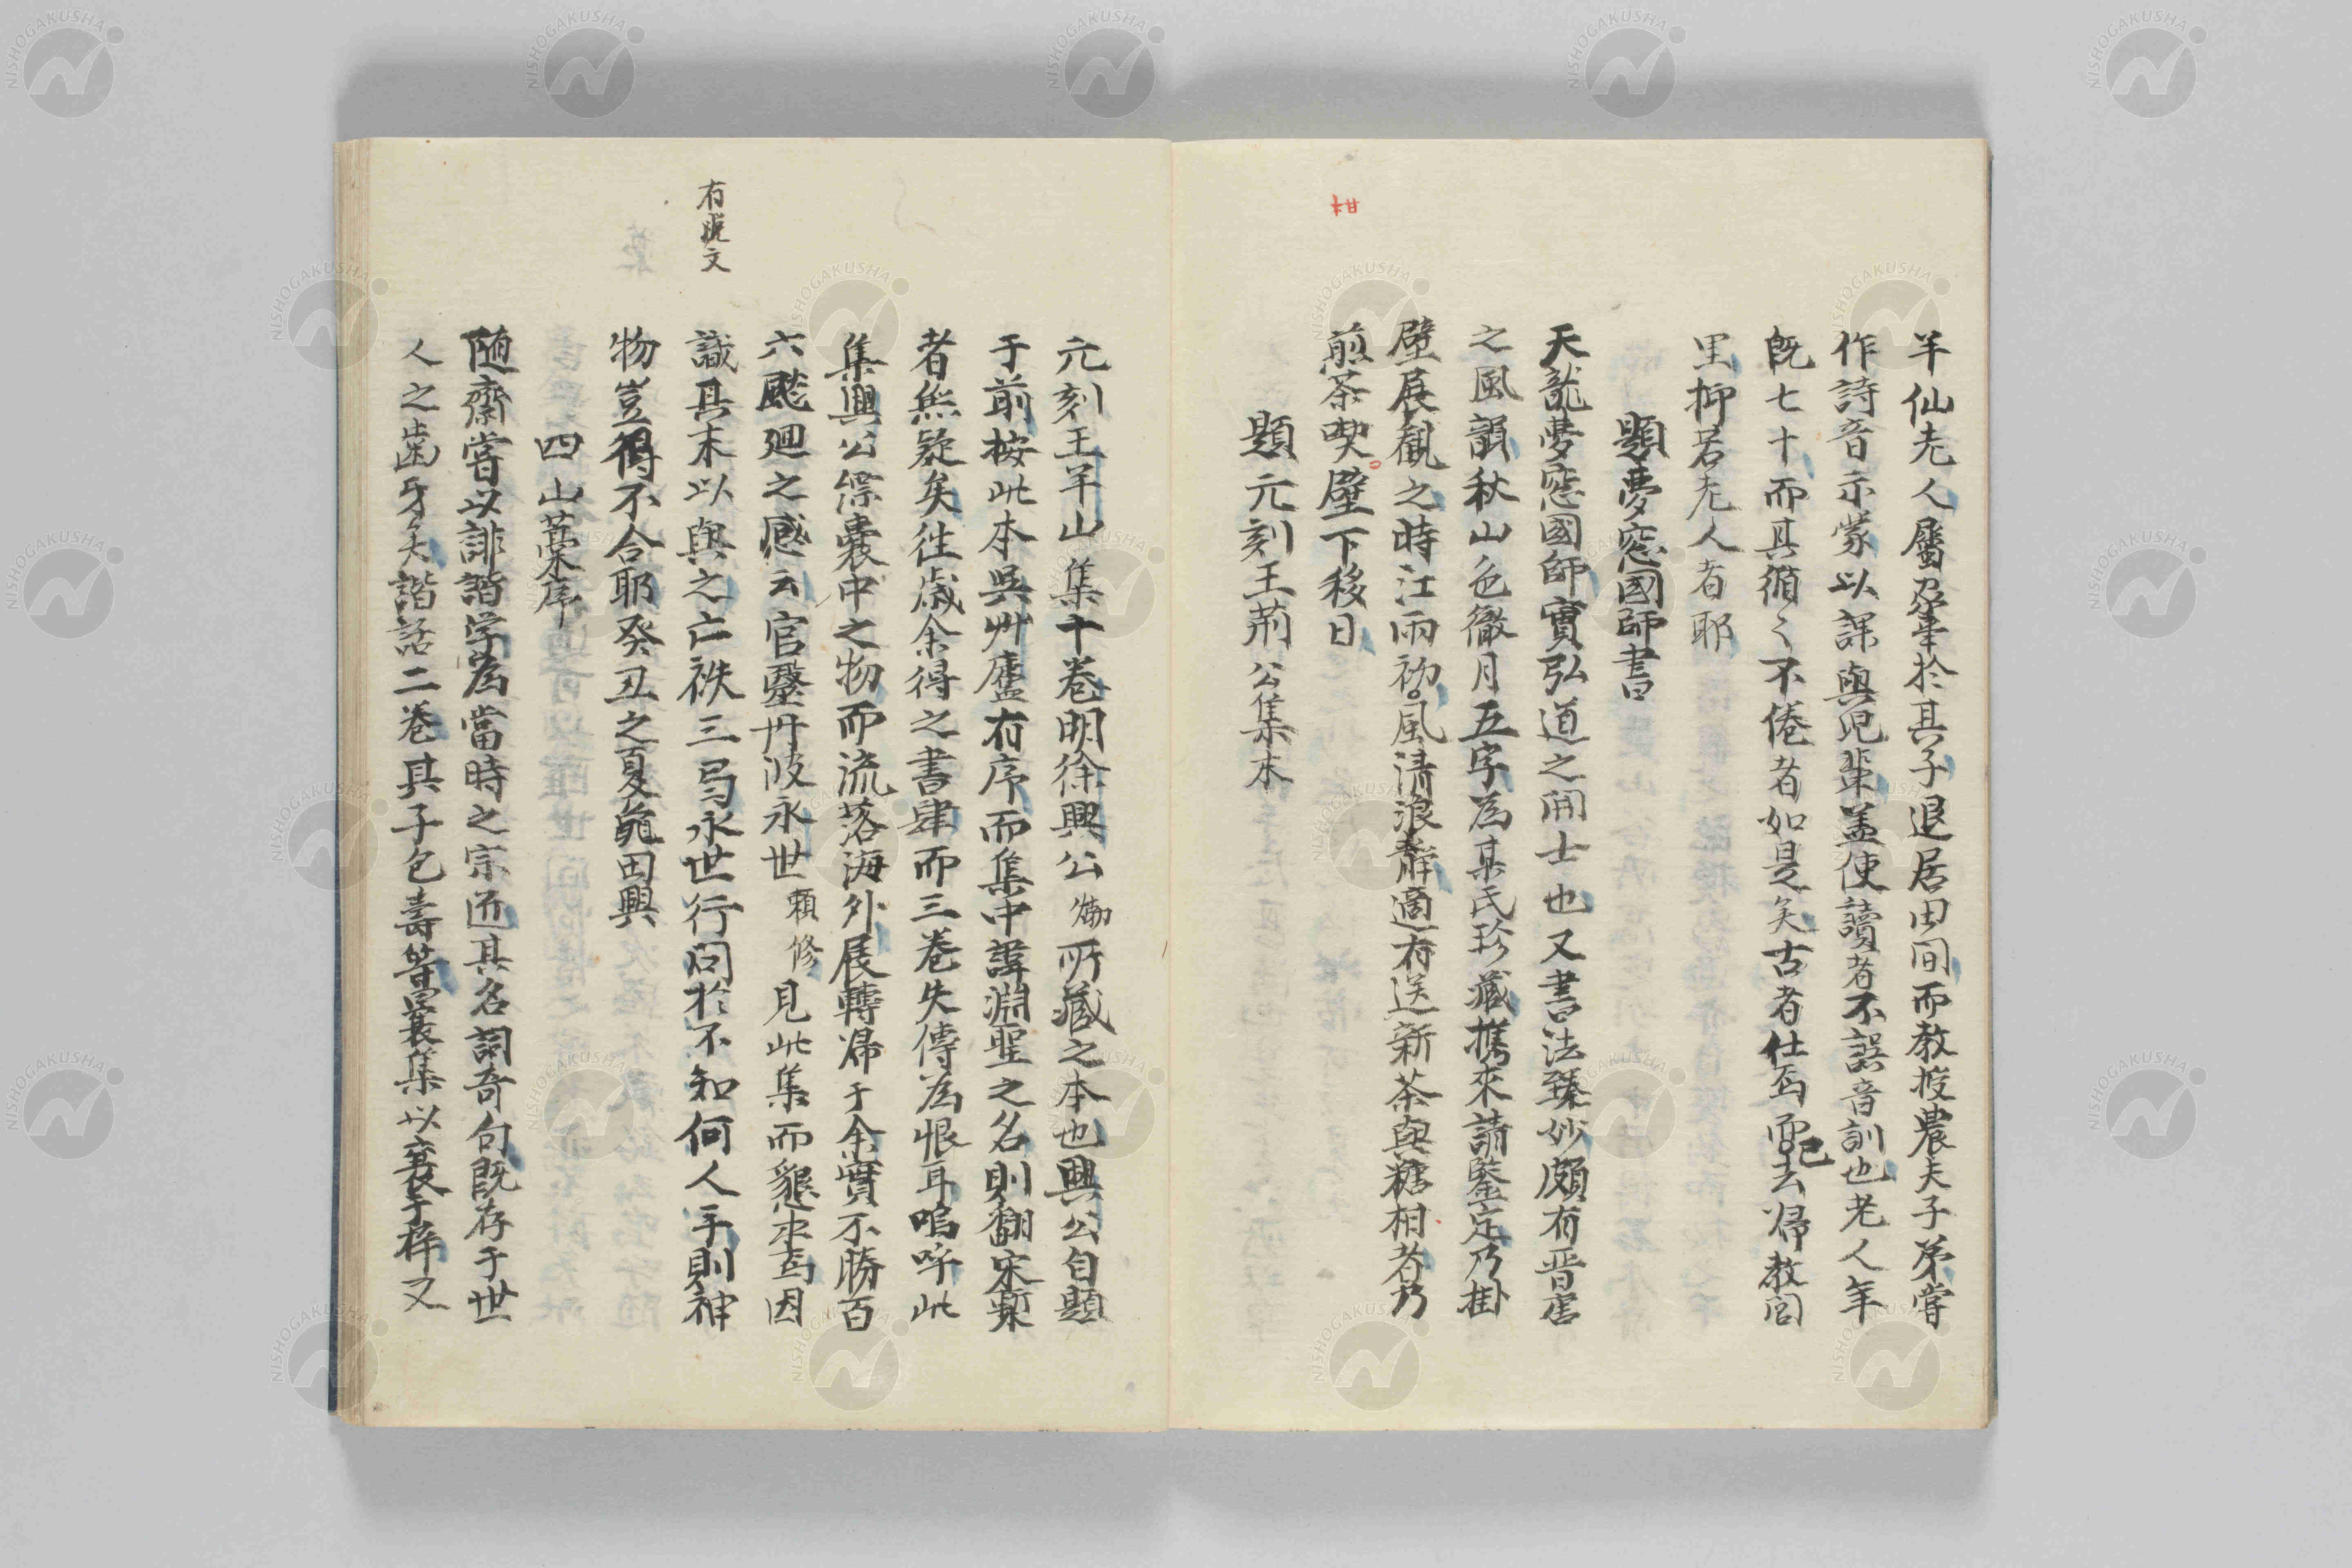 羊仙老人屬耒耜於其子退居田間而教授農夫子弟嘗
作詩音示蒙以課與児輩盖使讀者不誤音訓也老人年
既七十而其循〻不倦者如是矣古者仕焉而已去帰教閭
里抑若老人者耶
題夢窓國師書
天龍夢窓國師實弘道之開士也又書法臻妙頗有晋唐
之風韻秋山色徹月五字為某氏珍藏携來請鑒定乃掛
壁展觀之時江雨初。風清浪靜適有送新茶與糖柑者乃
煎茶喫壁下移日
柑
題元刻王荊公集本
元刻王半山集十卷明徐興公𤊹所藏之本也興公自題
于前按此本呉州廬有序而集中諱淵聖之名則翻宋槧
者無疑矣往歳余得之書肆而三巻失傳為恨耳嗚呼此
集興公縹囊中之物而流落海外展轉帰于余實不勝百
六颷廻之感云官醫丹波永世頼修見此集而懇求焉因
識其末以與之亡袟三㢧永世行問於不知何人手則神
有脱文
物豈得不合耶癸丑之夏龜田興
四山藁序
随齋嘗以誹諧学為當時之宗匠其名詞奇句既存于世
人之歯牙矣諧話二巻其子包壽等嘗裒集以裒于梓又